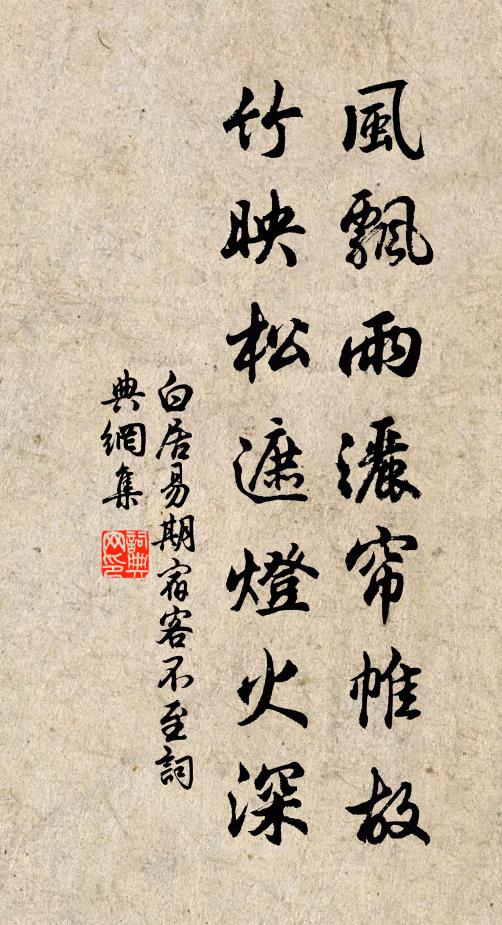 風飄雨灑帘帷故
竹映松遮燈火深
白居易期宿客不至詞
典網集
詞典
网印